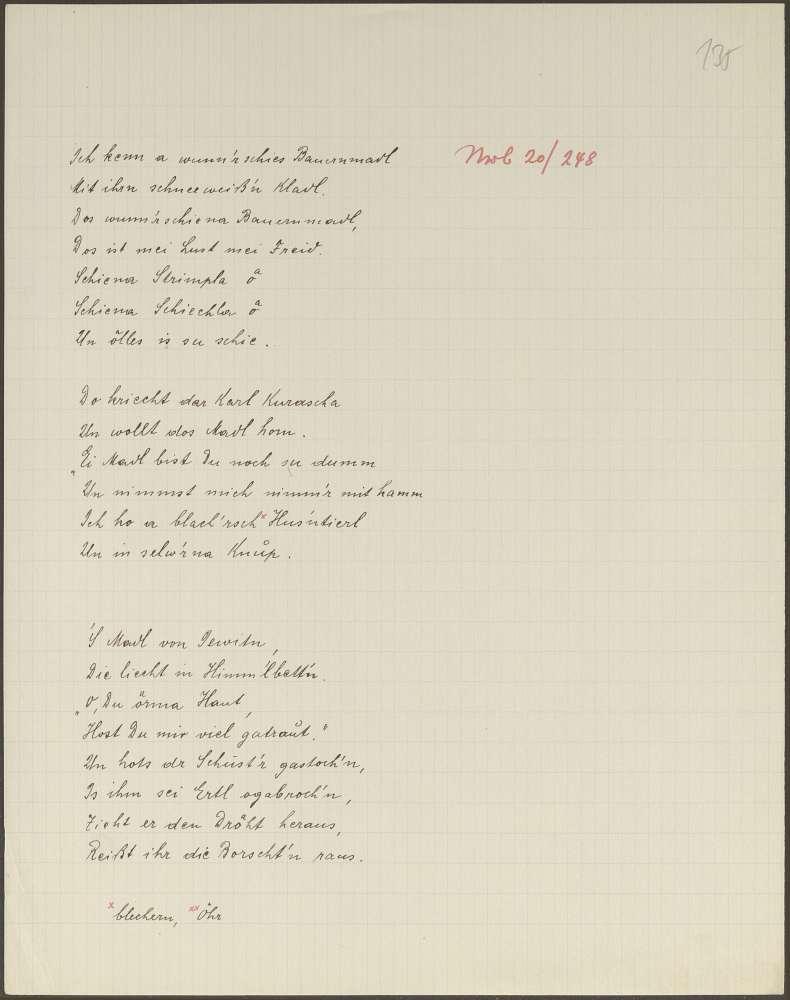 135
Ich kenn a wunn'rschies Bauernmadl
Mob 20/248
Mit ihrn schneeweiß'n Kladl.
Dos wunn'rschiena Bauernmadl,
Dos ist mei Lust mei Freid.
Schiena Strimpla å
Schiena Schiechla å
Un ölles is su schie.
Do kriecht dar Karl Kurascha
Un wollt dos Madl hom.
„Ei Madl bist Du noch su dumm
Un nimmst mich nimm'r mit hamm
Ich ho a blach'rsch× Hus'ntierl
Un in selw'rna Knůp.
'S Madl von Dewitn,
Die liecht in Himm'lbett'n.
„O, Du örma Haut,
Host Du mir viel gatraůt."
Un hots dr Schůst'r gastoch'n,
Is ihm sei Ertl ogabroch'n,
Zieht er den Dröht heraus,
Reißt ihr die Borscht'n raus.
× blechern, ×× Öhr